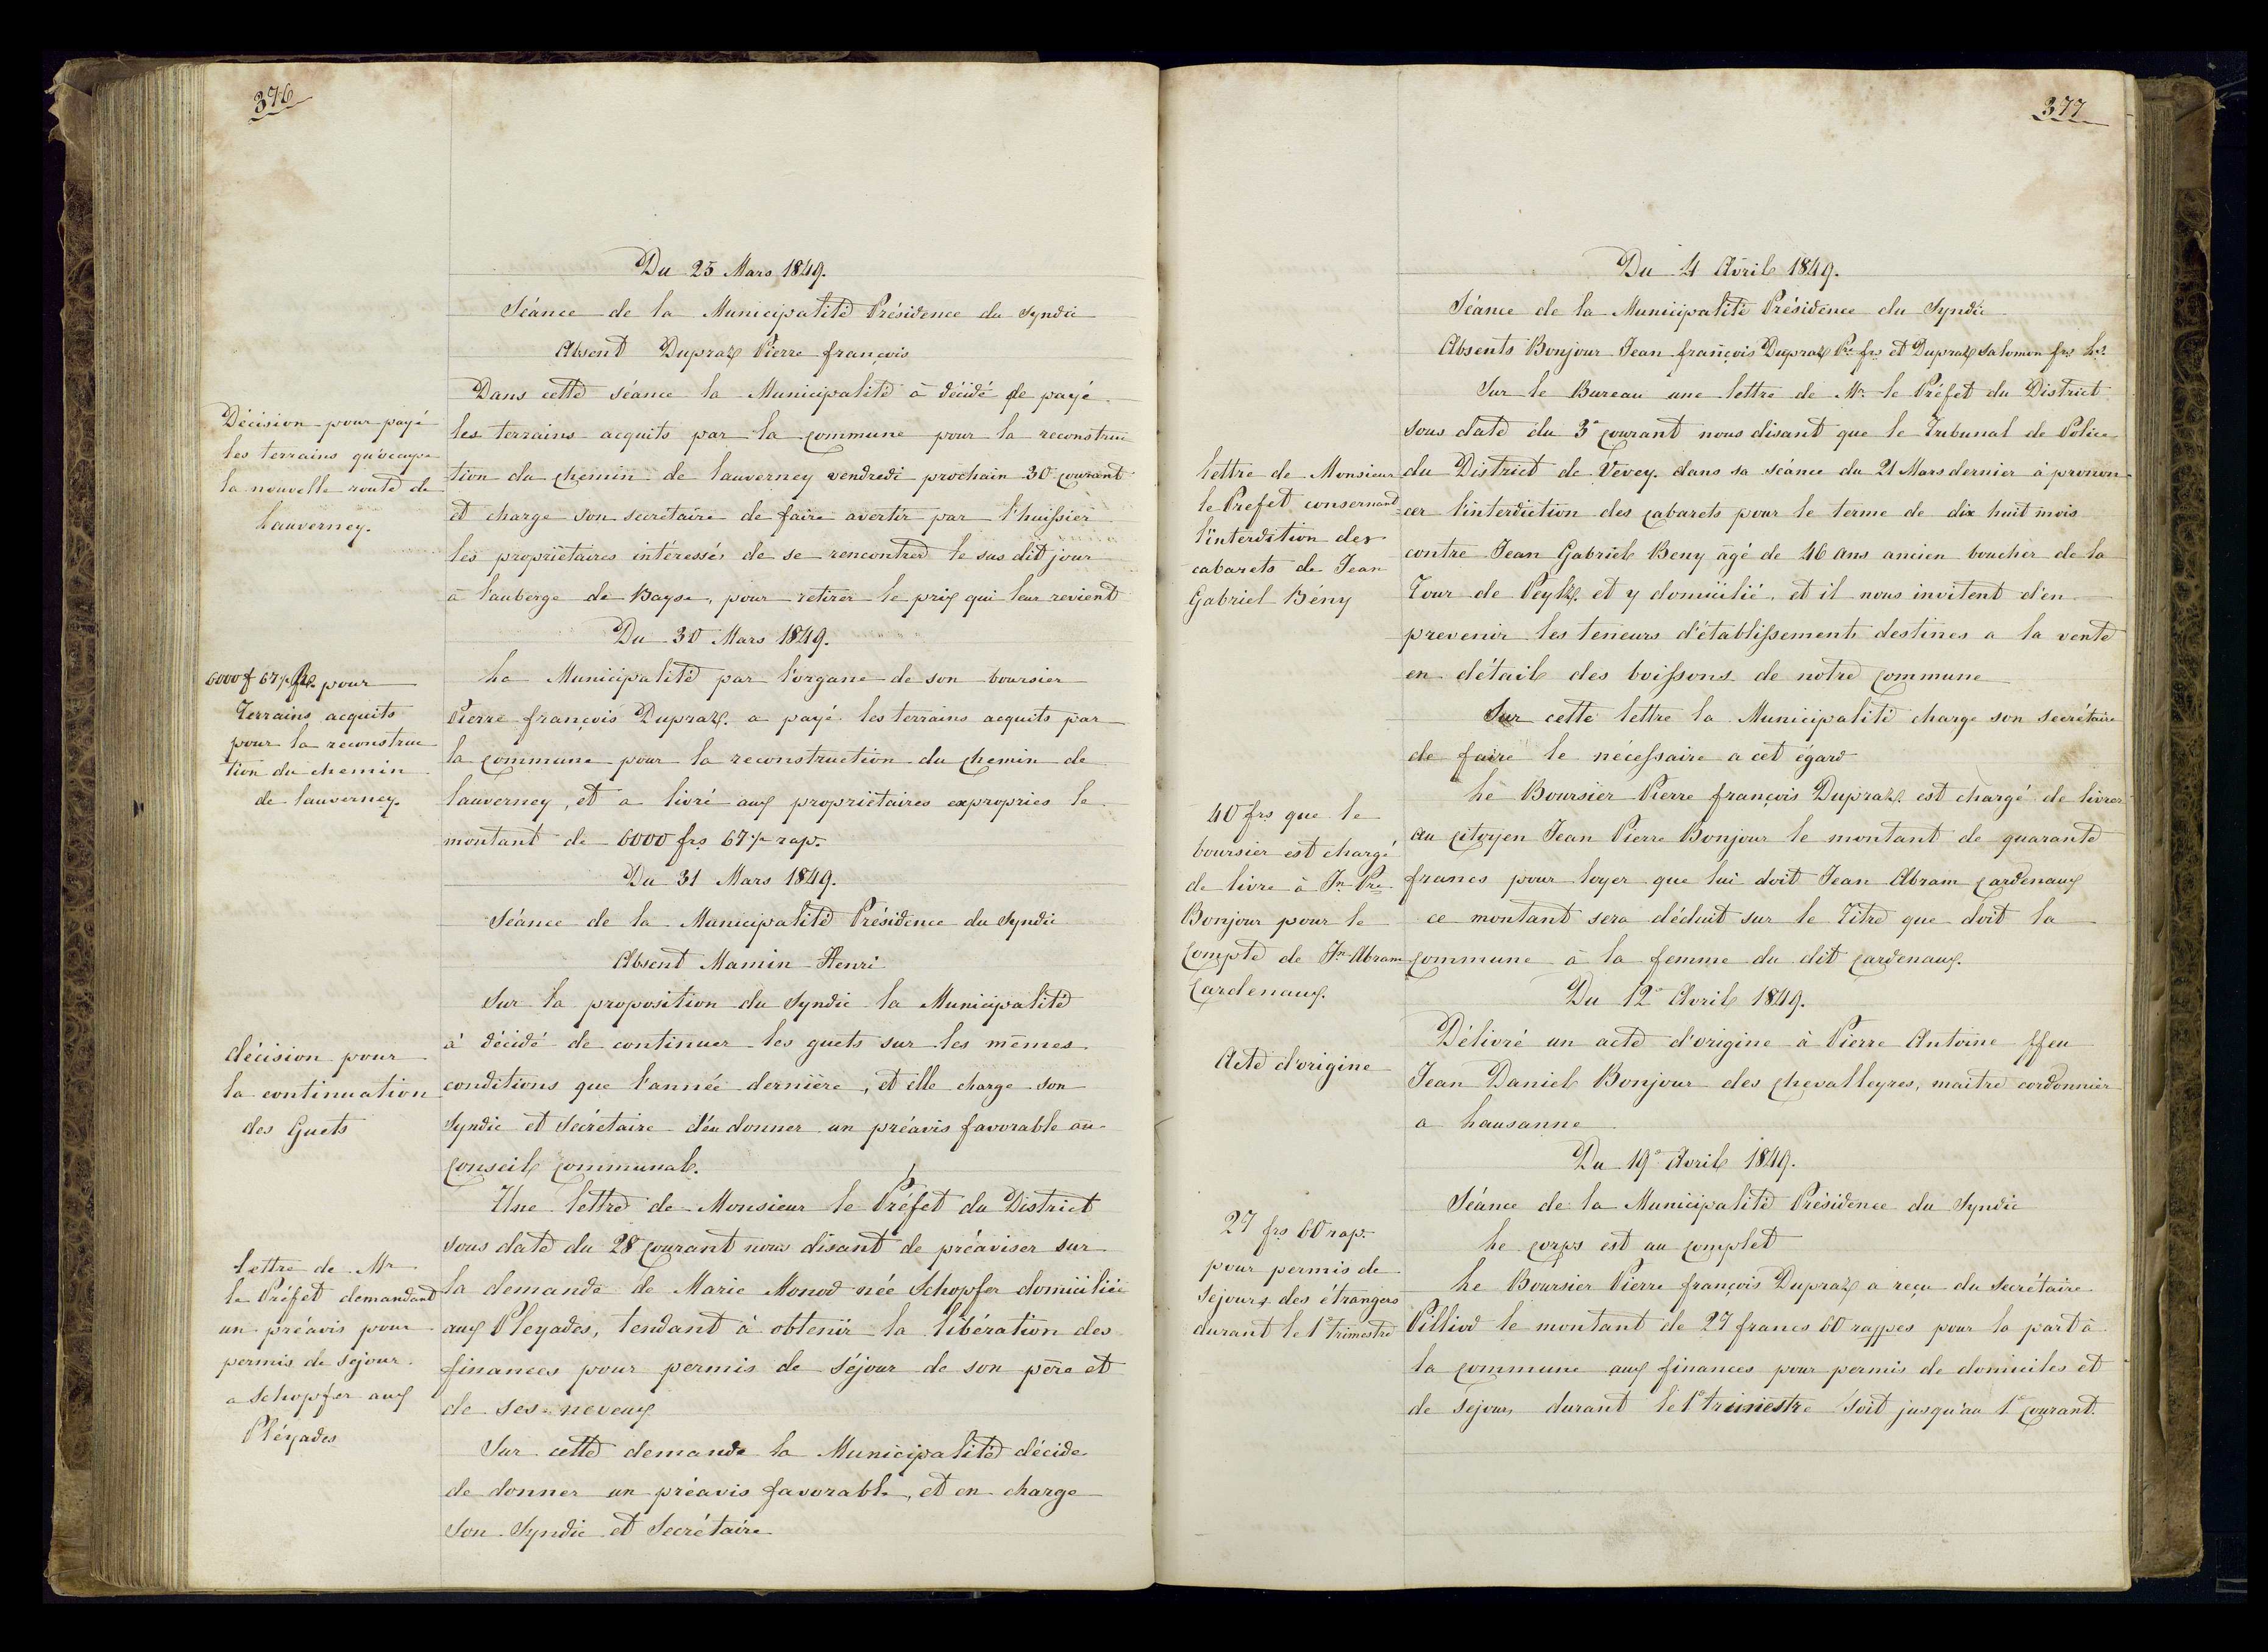 376
Du 25 Mars 1849.
Séance de la Municipalité Présidence du Syndic
Absent Dupraz Pierre françois
Décision pour payé
les terrains qu'occupe
la nouvelle route de
Lauverney.
Dans cette séance la Municipalité à décidé de payé
les terrains acquits par la commune pour la reconstruc
tion du chemin de Lauverney vendredi prochain 30 courant
et charge son secretaire de faire avertir par l'huissier
les propriétaires intéressés de se rencontrer le sus dit jour
à l'auberge de Bayse, pour retirer le prix qui leur revient
Du 30 Mars 1849.
6000 f 67 1/2 pour
Terrains acquits
pour la reconstruc
tion du chemin
de Lauverney.
La Municipalité par l'organe de son boursier
Pierre françois Dupraz a payé les terrains acquits par
la commune pour la reconstruction du chemin de
Lauverney, et a livré aux propriétaires expropries le
montant de 6000 frs 67 1/2 rap.
Du 31 Mars 1849.
Séance de la Municipalité Présidence du Syndic
Absent Mamin Henri
décision pour
la continuation
des Guets
Sur la proposition du Syndic la Municipalité
à décidé de continuer les guets sur les mêmes
conditions que l'année dernière, et elle charge son
Syndic et Secrétaire d'en donner un préavis favorable au
conseil communal.
Lettre de Mr
le Préfet demandant
un préavis pour
permis de séjour
a Schopfer aux
Pléyades
Une lettre de Monsieur le Préfet du District
sous date du 28 courant nous disant de préaviser sur
la demande de Marie Monod née Schopfer domiciliée
aux Pleyades, tendant à obtenir la libération des
finances pour permis de séjour de son père et
de ses neveux
Sur cette demande la Municipalité décide
de donner un préavis favorable, et en charge
son Syndic et Secrétaire
377
Du 4 Avril 1849.
Séance de la Municipalité Présidence du Syndic
Absents Bonjour Jean françois Dupraz Pre frs et Dupraz Salomon frs Ls.
Lettre de Monsieur
le Prefet consernant
l'interdition des
cabarets de Jean
Gabriel Bény
Sur le Bureau une lettre de Mr. le Préfet du District
sous date du 3e courant nous disant que le Tribunal de Police
du District de Vevey dans sa séance du 21 Mars dernier à pronon
cer l'interdiction des cabarets pour le terme de dix huit mois
contre Jean Gabriel Beny âgé de 46 ans ancien boucher de la
Tour de Peylz et y domicilié, et il nous invitent d'en
prevenir les teneurs d'établissements destines a la vente
en détail des boissons de notre commune
Sur cette lettre la Municipalité charge son secrétaire
de faire le nécessaire a cet égard
40 frs que le
boursier est chargé
de livre à Jn Pre
Bonjour pour le
compte de Jn Abram
Cardenaux.
Le Boursier Pierre françois Dupraz est chargé de livrer
au citoyen Jean Pierre Bonjour le montant de quarante
francs pour loyer que lui doit Jean Abram Cardenaux
ce montant sera déduit sur le Titre que doit la
commune à la femme du dit Cardenaux.
Du 12e Avril 1849.
Acte d'origine
Délivré un acte d'origine à Pierre Antoine ffeu
Jean Daniel Bonjour des chevalleyres, maitre cordonnier
a Lausanne
Du 19e Avril 1849.
Séance de la Municipalité Présidence du Syndic
Le corps est au complet
27 frs 60 rap.
pour permis de
Sejours des étrangers
durant le 1e trimestre
Le Boursier Pierre françois Dupraz a reçu du secrétaire
Pilliod le montant de 27 francs 60 rappes pour la part à
la commune aux finances pour permis de domiciles et
de séjour, durant le 1e trimestre soit jusqu'au 1e courant.